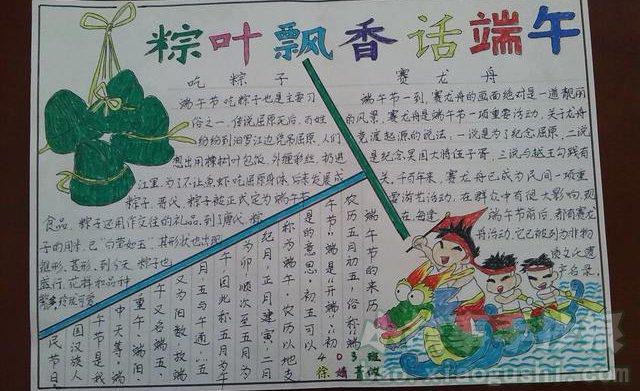 粽叶飘香话端午
吃粽子
端午节吃粽子也是主要习
俗之一,传说屈原死后,百姓
纷纷到汨罗江边凭吊屈原,人们
想出用楝树叶包饭,外缠彩丝,扔进
江里,为了不让鱼虾吃屈原身体,后来发展成
粽子,晋代,粽子被正式定为端午节
食品,粽子还用作交往的礼品,到了唐代,粽
子的用米,已"白莹如玉",其形状也出现
锥形、菱形,到今天,粽子也
盛行,花样和品种
赛龙舟
端午节一到,赛龙舟的画面绝对是一道靓丽
的风景,赛龙舟是端午节一项重要活动,关于龙舟
竞渡起源的说法,一说是为了纪念屈原,二说
是纪念吴国大将伍子胥,三说与越王勾践有
关,千百年来,赛龙舟已成为民间一项重
要游龙活动,在群众中有很大影响,现
在,每逢
端午节前后,都有赛龙
舟活动,它已被列为非物
质文化遗
产名录。
端午节的来历
农历五月初五,俗称"端
午节",端是"开端""初"
是的意思,初五可以
称为端午,农历以地支
纪月,正月建寅,二月
为卯,顺次至五月为
午,因此称五月为午
月,五与午通,五
又为阳数,故端
午又名端五、
重午、端阳、
中天等,端
午节是我
国汉族人
民节日
403班